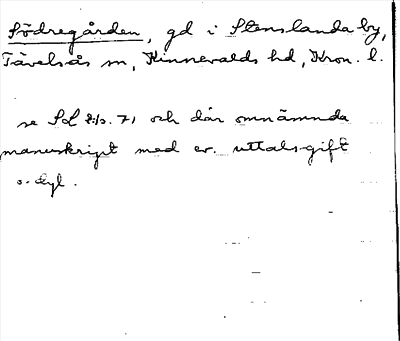 Södregården, gd i Stenslanda by,
Tävelsås sn, Kinnevalds hd, Kron. l.
se SOL 8:s. 71 och där omnämnda
manuskript med ev. uttalsgift
o. dyl.